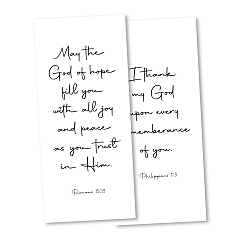 May the
God of hope
fill you
with all joy
and peace
as you trust
in Him.
Romans 15:13
I thank
my God
upon every
rememberance
of you.
Philippians 1:3